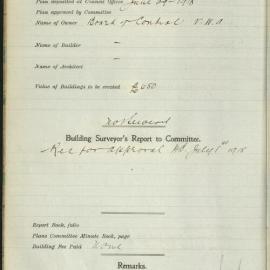 Plan deposited at Council Offices June 29th 1918
Plan approved by Committee
Name of Owner Board of Control V.W.A.
Name of Builder -
Name of Architect -
Value of Buildings to be erected £650
Building Surveyor's Report to Committee.
Rec for approval July 1st 1918
Report Book, folio
Plans Committee Minute Book, page
Building Fee Paid None
Remarks.